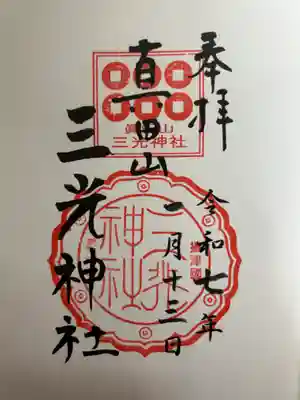 奉拝
令和七年
一月十三日
真田山
三光神社
眞田山
三光神社
攝津國
三光
神社